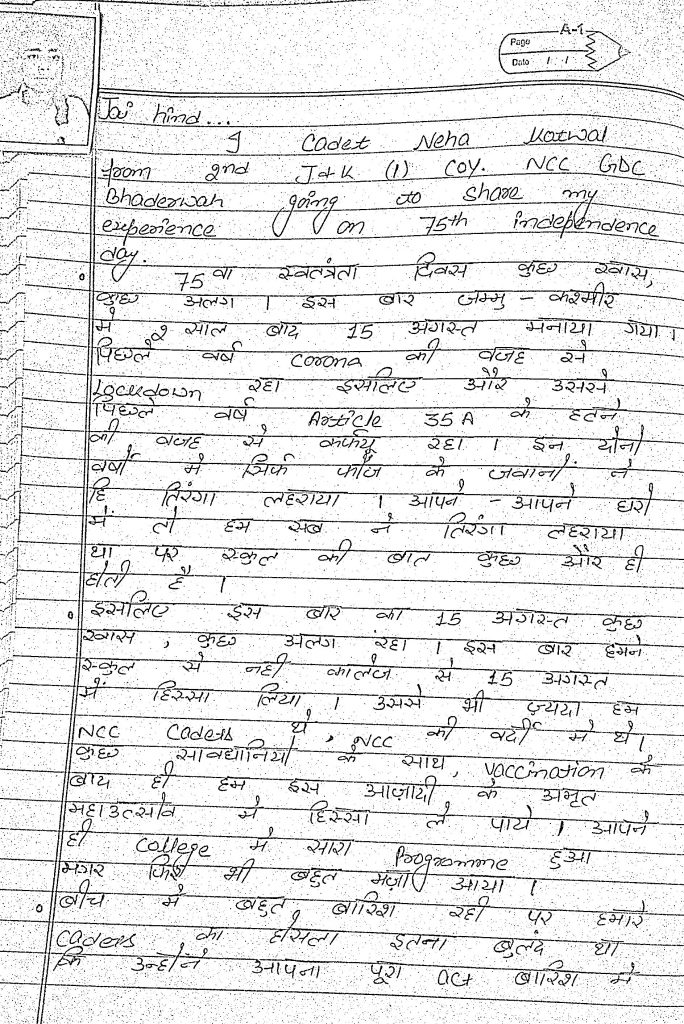 A-1
Page
Date / /
Jai hind...
I Cadet Neha Kotwal
from 2nd J&K (1) COY. NCC GDC
Bhaderwah going to share my
experience on 75th independence
day.
75 वा स्वतंत्रता दिवस कुछ खास,
कुछ अलग । इस बार जम्मु - कश्मीर
में 2 साल बाद 15 अगस्त मनाया गया ।
पिछले वर्ष corona की वजह से
Lockdown रहा इसलिए और उससे
पिछले वर्ष Article 35A के हटने
की वजह से कर्फ्यू रहा । इन दोनो
वर्षो में सिर्फ फौज के जवानों ने
हि तिरंगा लहराया । आपने - आपने घरो
में तो हम सब ने तिरंगा लहराया
था पर स्कुल की बात कुछ और ही
होती है ।
इसलिए इस बार का 15 अगस्त कुछ
खास , कुछ अलग रहा । इस बार हमने
स्कुल से नही कॉलेज से 15 अगस्त
में हिस्सा लिया । उससे भी ज़्यदा हम
NCC Cadets थे , NCC की वर्दी में थे ।
कुछ सावधानियों के साथ , vaccination के
बाद ही हम इस आज़ादी के अमृत
महाउत्सोव में हिस्सा ले पाये । आपने
ही college में सारा Programme हुआ
मगर फिर भी बहुत मज़ा आया ।
बीच में बहुत बारिश रही पर हमारे
cadets का होसला इतना बुलंद था
कि उन्होनें आपना पूरा act बारिश में